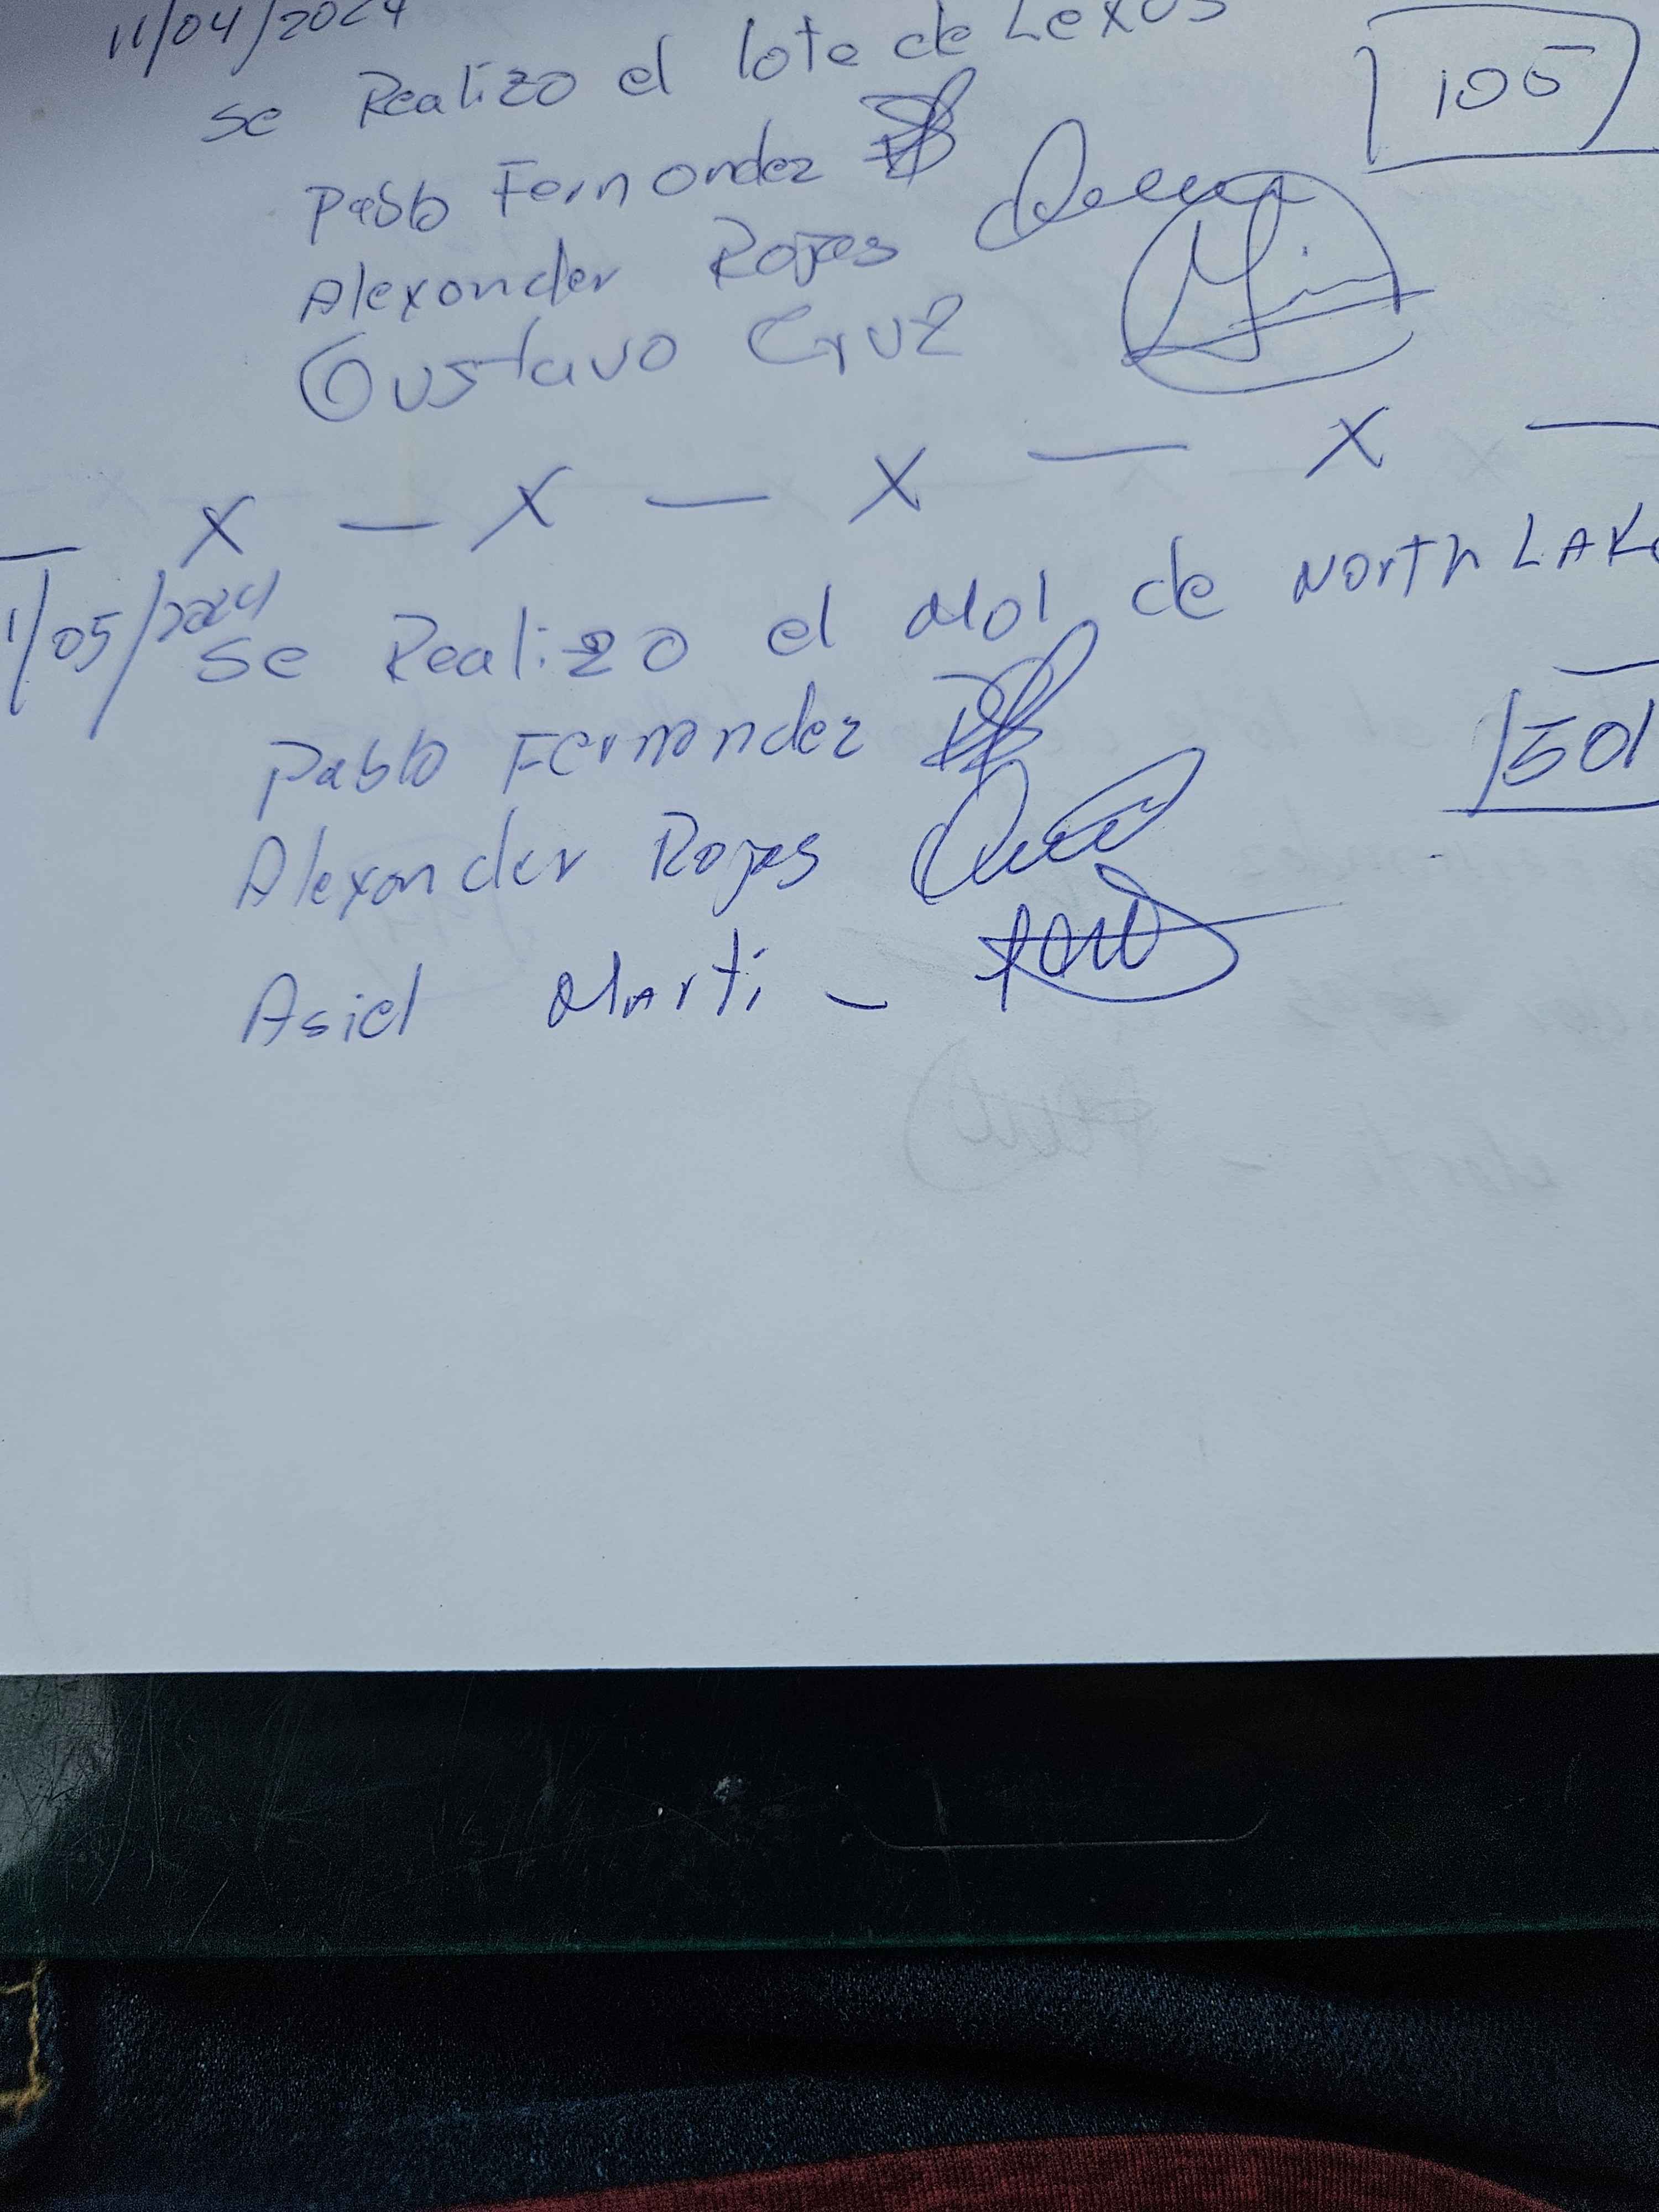 11/04/2024
se Realizo el lote de Lexus
105
Pablo Fernandez
Alexander Rojas
Gustavo Cruz
— X — X — X — X —
1/05/2024
se Realizo el Mol de North LAKE
150
Pablo Fernandez
Alexander Rojas
Asiel Marti –